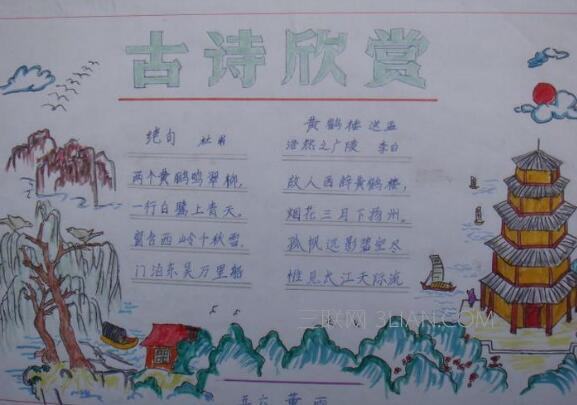 古诗欣赏
绝句 杜甫
两个黄鹂鸣翠柳,
一行白鹭上青天。
窗含西岭千秋雪,
门泊东吴万里船
黄鹤楼送孟
浩然之广陵 李白
故人西辞黄鹤楼,
烟花三月下扬州。
孤帆远影碧空尽
惟见长江天际流
三联网 3LIAN.COM